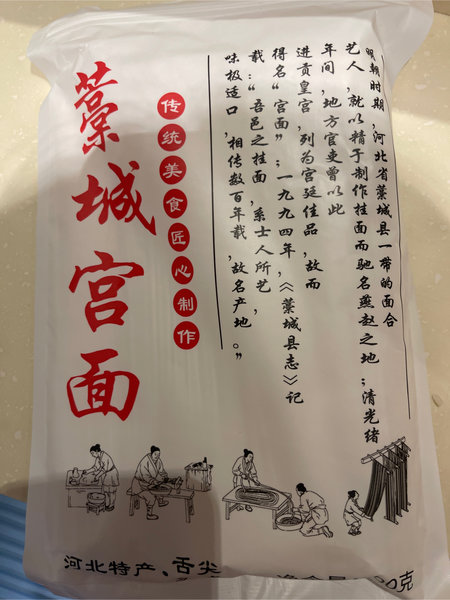 藁城宫面
传统美食匠心制作
明朝时期，河北省藁城县一带的面合
艺人，就以精于制作挂面而驰名燕赵之地；清光绪
年间，地方官吏曾以此
进贡皇宫，列为宫廷佳品，故而
得名“宫面”；一九九四年，《藁城县志》记
载：“吾邑之挂面，系士人所艺，
味极适口，相传数百年载，故名产地。”
河北特产、舌尖
克